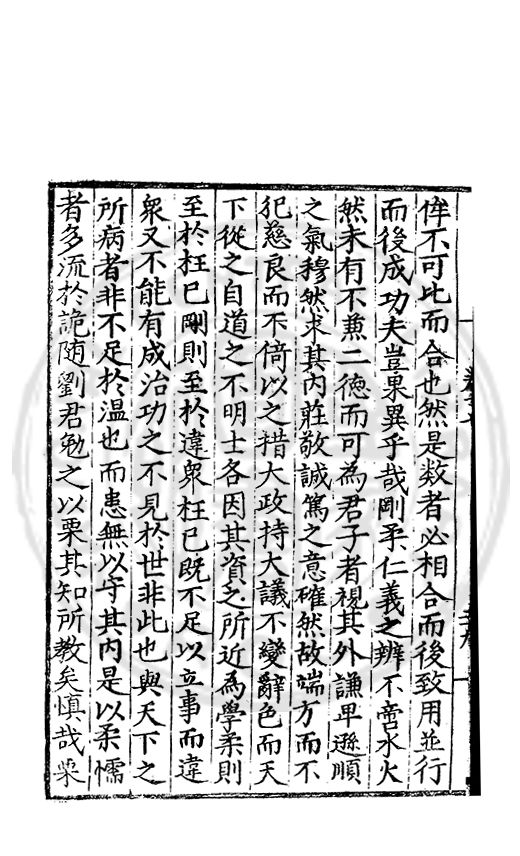 侔不可比而合也然是数者必相合而後致用並行
而後成功夫豈果異乎哉剛柔仁義之辨不啻水火
然未有不兼二德而可為君子者視其外謙卑遜順
之氣穆然求其內莊敬誠篤之意確然故端方而不
犯慈良而不倚以之措大政持大議不變辭色而天
下從之自道之不明士各因其資之所近為學柔則
至於枉己剛則至於違眾枉己既不足以立事而違
衆又不能有成治功之不見於世非此也與天下之
所病者非不足於温也而患無以守其內是以柔懦
者多流於詭随劉君勉之以栗其知所教矣慎哉栗